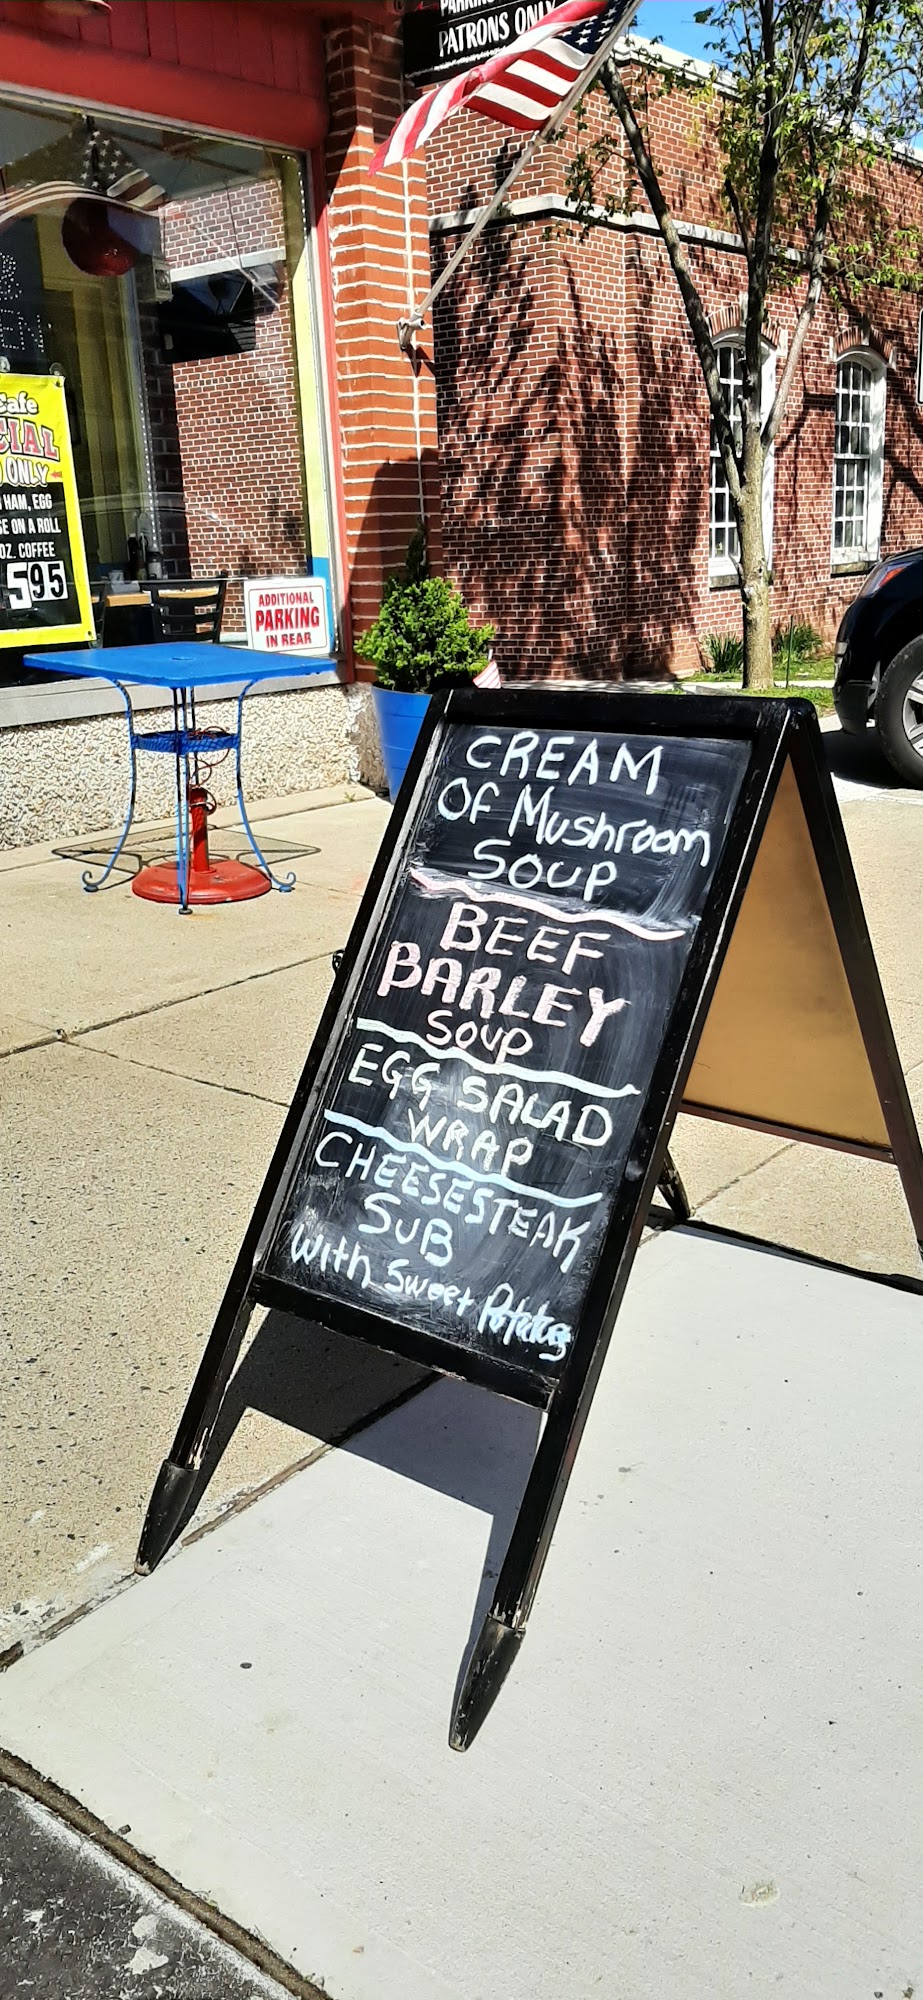 PATRONS ONLY
Cafe
CIAL
ONLY
HAM, EGG
SE ON A ROLL
OZ. COFFEE
595
ADDITIONAL
PARKING
IN REAR
CREAM
OF MUSHROOM
SOUP
BEEF
BARLEY
SOUP
EGG SALAD
WRAP
CHEESESTEAK
SUB
With Sweet Potatoes